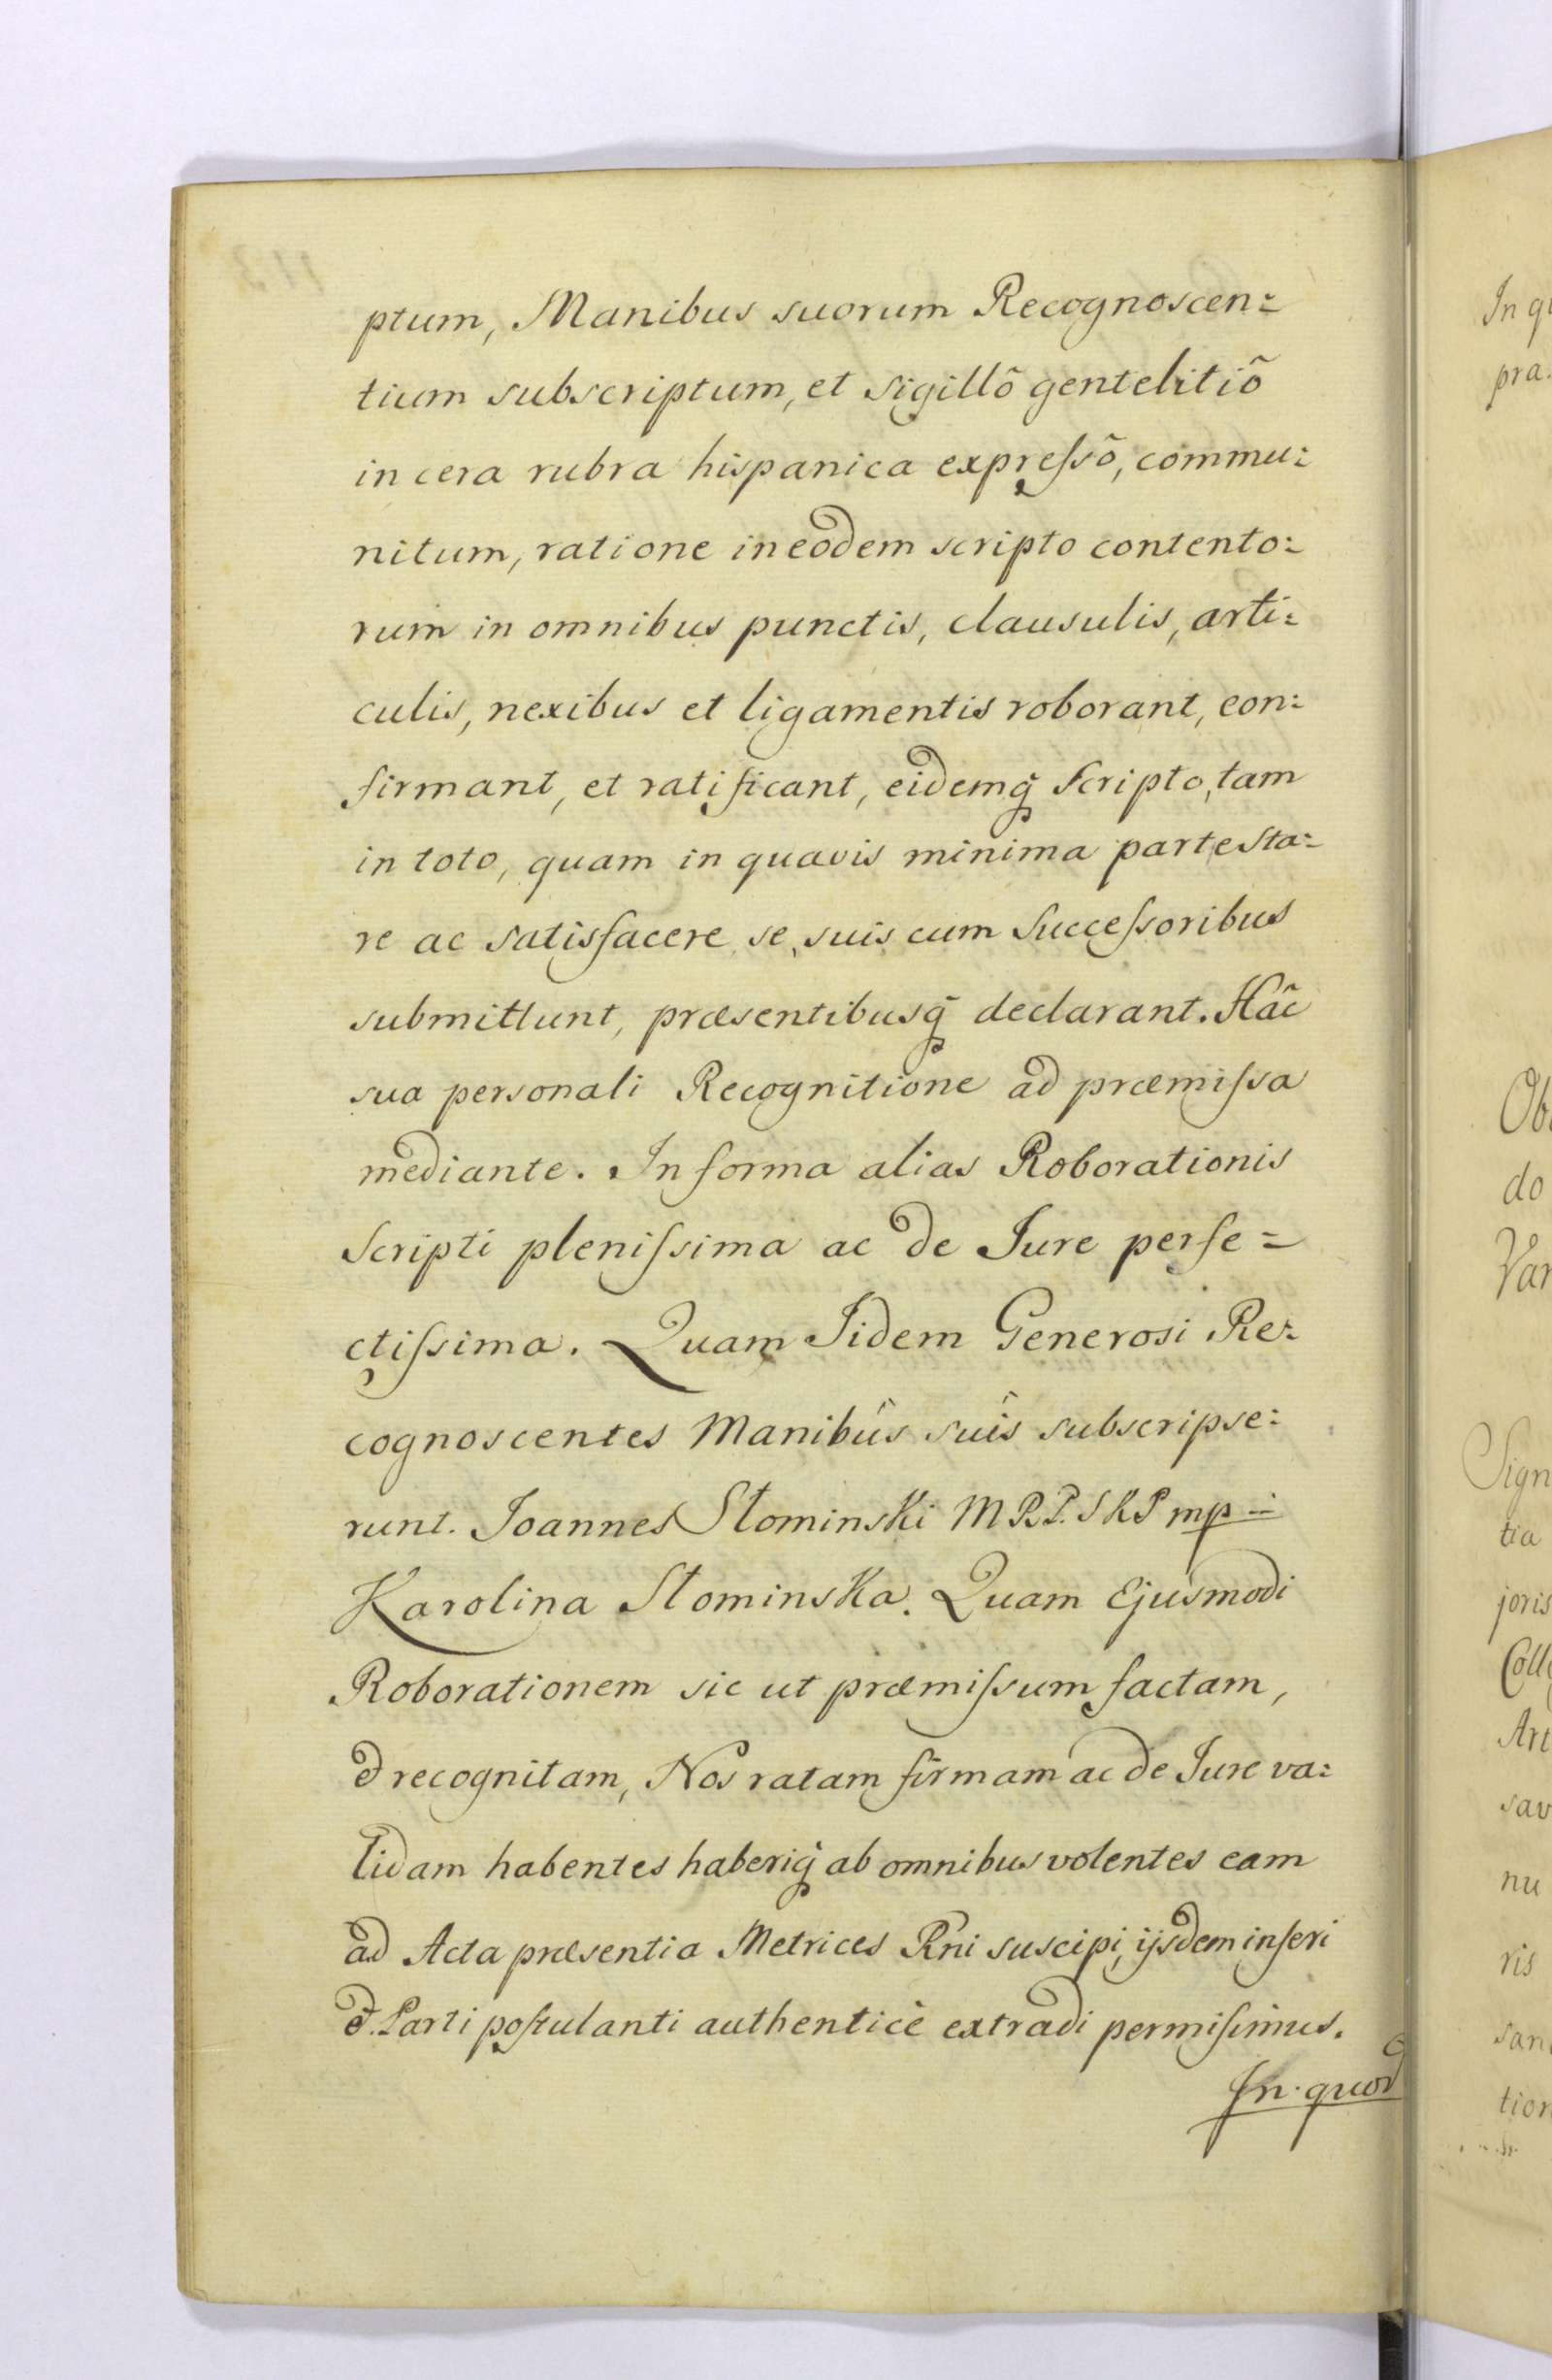 ptum, Manibus suorum Recognoscen=
tium subscriptum, et sigillõ gentelitiõ
in cera rubra hispanica expreſsõ, commu=
nitum, ratione in eodem scripto contento=
rum in omnibus punctis, clausulis, arti=
culis, nexibus et ligamentis roborant, con=
firmant, et ratificant, eidemq̃ Scripto, tam
in toto, quam in quavis minima parte sta=
re ac satisfacere se, suis cum Succeſsoribus
submittunt, præsentibusq̃ declarant. Hâc
sua personali Recognitione ad præmiſsa
mediante. In forma alias Roborationis
Scripti pleniſsima ac de Jure perfe=
ctiſsima. Quam Iidem Generosi Re=
cognoscentes Manibûs suîs subscripse=
runt. Joannes Słominski MRP. SKP mp
Karolina Słominska. Quam Ejusmodi
Roborationem sic ut præmiſsum factam,
& recognitam, Nos ratam firmam ac de Jure va=
lidam habentes haberiq̃ ab omnibus volentes eam
ad Acta præsentia Metrices Rñi suscipi, ijsdem inſeri
& Parti poſtulanti authenticè extradi permiſimus.
In quod
In q
pra
Ob
do
Var
Sign
tia
joris
Coll
Art
sav
nu
ris
san
tion